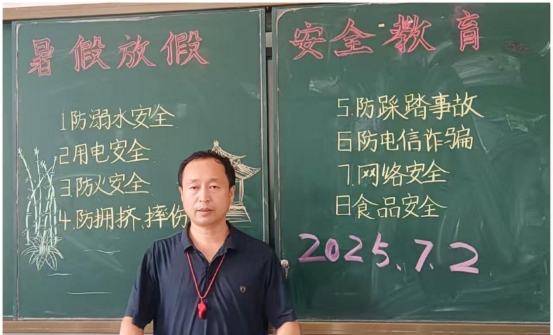 暑假放假
安全教育
1防溺水安全
2.用电安全
3.防火安全
4.防拥挤、摔伤
5.防踩踏事故
6防电信诈骗
7.网络安全
8食品安全
2025.7.2